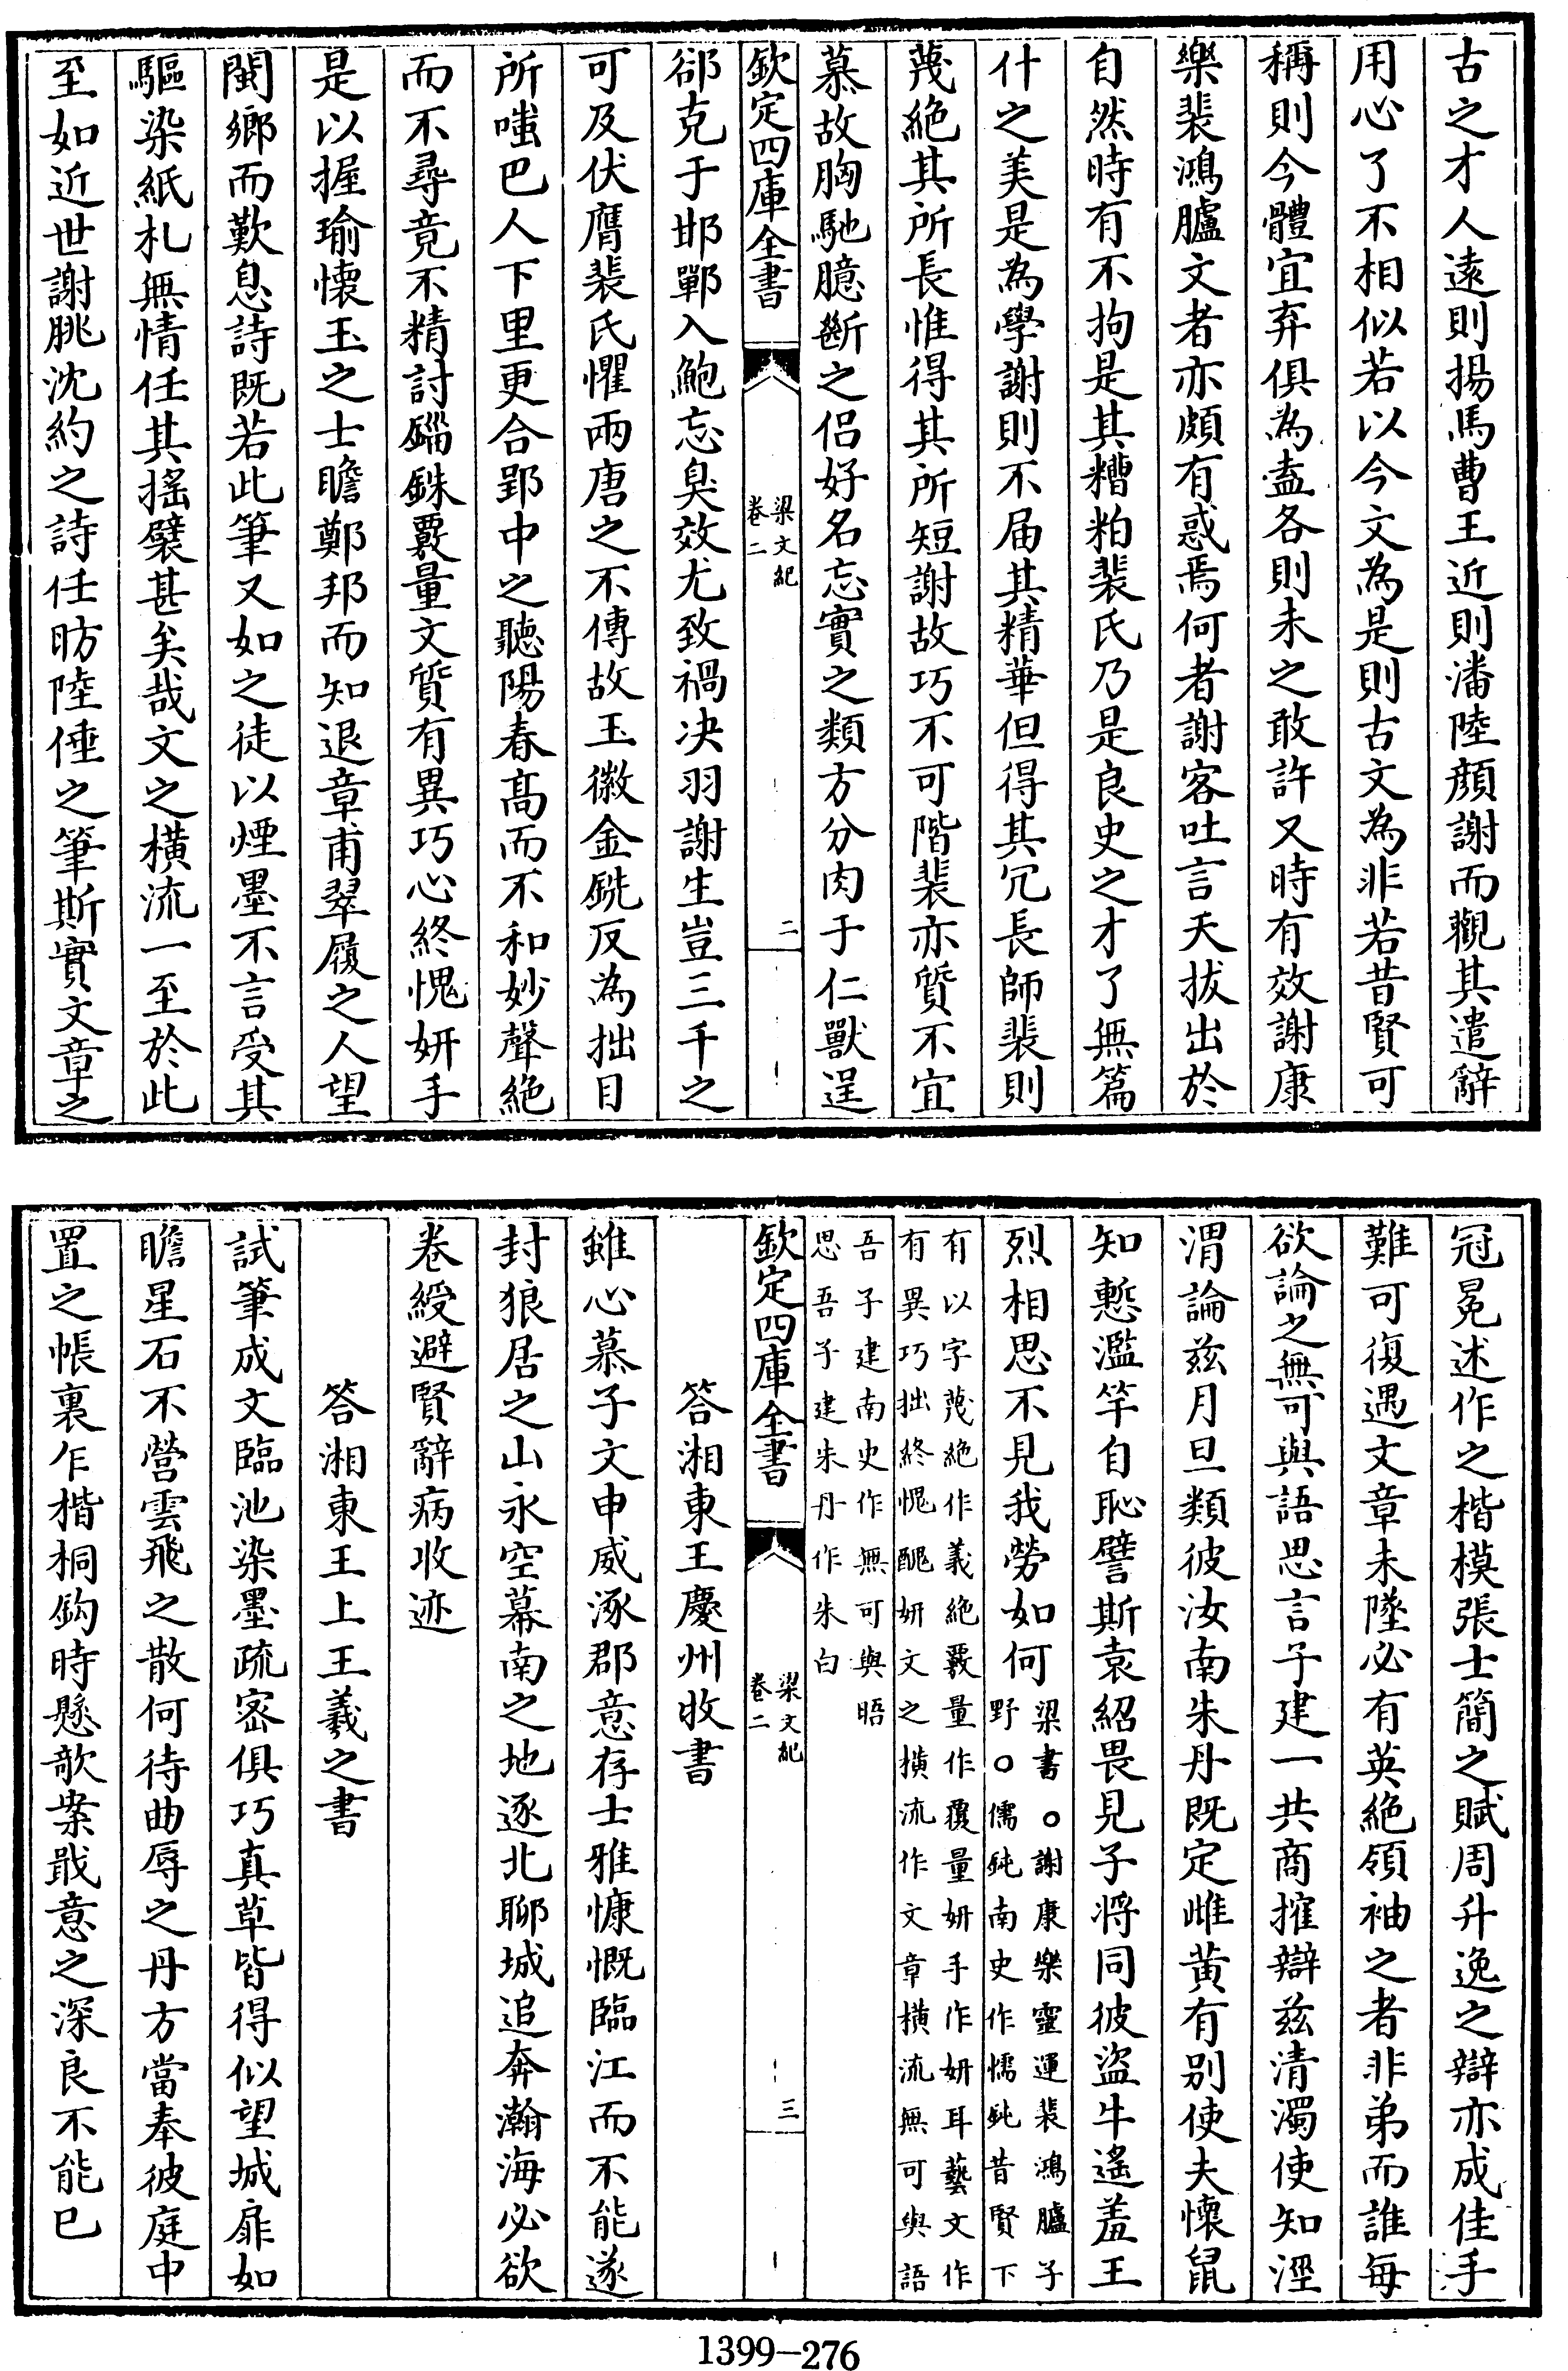 古之才人遠則揚馬曹王近則潘陸顔謝而觀其遣辭
用心了不相似若以今文為是則古文為非若昔賢可
稱則今體宜弃俱為盍各則未之敢許又時有效謝康
樂裴鴻臚文者亦頗有惑焉何者謝客吐言天拔出於
自然時有不拘是其糟粕裴氏乃是良史之才了無篇
什之美是為學謝則不届其精華但得其冗長師裴則
蔑絶其所長惟得其所短謝故巧不可階裴亦質不宜
慕故胸馳臆斷之侣好名忘實之類方分肉于仁獸逞
欽定四庫全書
梁文紀
卷二
二
郤克于邯鄲入鮑忘臭效尤致禍决羽謝生豈三千之
可及伏膺裴氏懼兩唐之不傳故玉徽金銑反為拙目
所嗤巴人下里更合郢中之聽陽春髙而不和妙聲絶
而不尋竟不精討錙銖覈量文質有異巧心終愧妍手
是以握瑜懷玉之士瞻鄭邦而知退章甫翠履之人望
閩鄉而歎息詩既若此筆又如之徒以煙墨不言受其
驅染紙札無情任其摇襞甚矣哉文之橫流一至於此
至如近世謝朓沈約之詩任昉陸倕之筆斯實文章之
冠冕述作之楷模張士簡之賦周升逸之辯亦成佳手
難可復遇文章未墜必有英絶領袖之者非弟而誰每
欲論之無可與語思言子建一共商搉辯兹清濁使知涇
渭論兹月旦類彼汝南朱丹既定雌黄有别使夫懷鼠
知慙濫竽自恥譬斯袁紹畏見子將同彼盜牛遙羞王
烈相思不見我勞如何梁書○謝康樂靈運裴鴻臚子
野○儒鈍南史作懦鈍昔賢下
有以字蔑絶作義絶覈量作覆量妍手作妍耳藝文作
有異巧拙終愧醜妍文之横流作文章横流無可與語
吾子建南史作無可與晤
思吾子建朱丹作朱白
欽定四庫全書
梁文紀
卷二
三
答湘東王慶州收書
雖心慕子文申威涿郡意存士雅慷慨臨江而不能遂
封狼居之山永空幕南之地逐北聊城追奔瀚海必欲
卷綬避賢辭病收迹
答湘東王上王羲之書
試筆成文臨池染墨疏密俱巧真草皆得似望城扉如
瞻星石不營雲飛之散何待曲辱之丹方當奉彼庭中
置之帳裏乍楷桐鈎時懸欹案戢意之深良不能已
1399-276